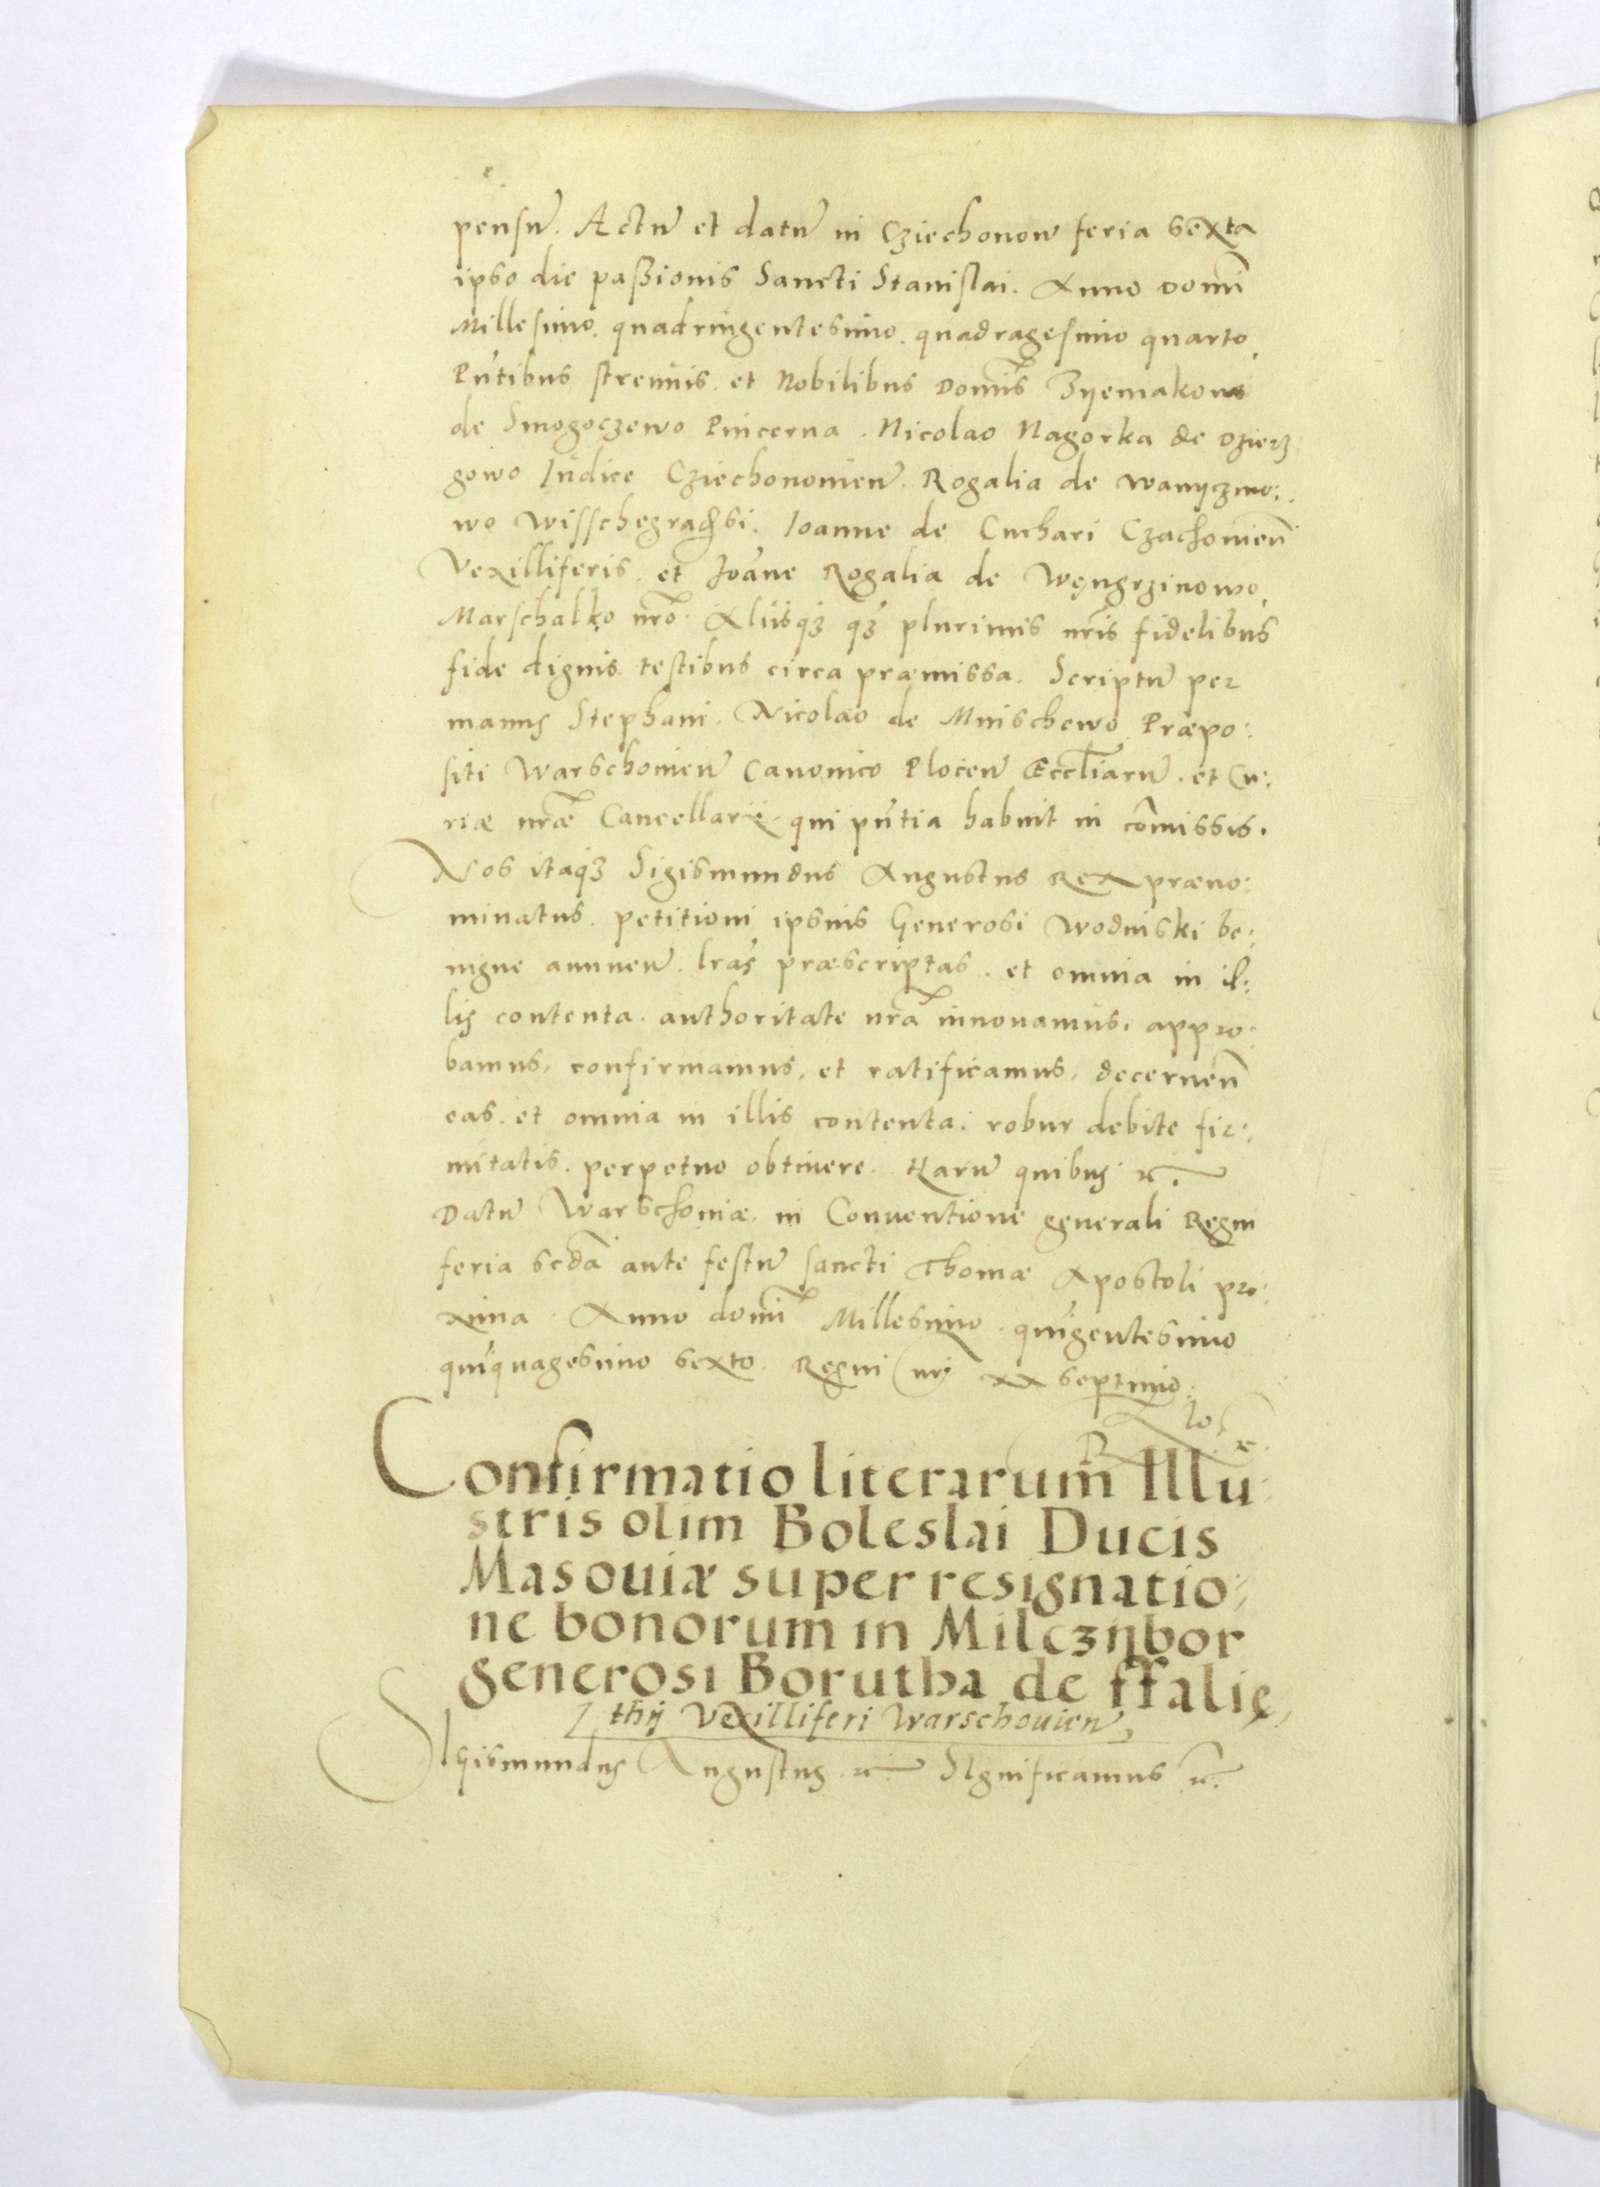 pensũ. Actũ et datũ in Cziechonow feria sexta
ipso die paßionis Sancti Stanislai. Anno Domĩ
Millesimo. quadringentesimo. quadragesimo quarto,
Pñtibus strenuis. et Nobilibus Domĩs Zyemakone
de Smogoczewo Pincerna. Nicolao Nagorka de Dzierz
gowo Iudice Cziechonouien̄. Rogalia de
wo Ioanne de Cuchari Czachonieñ
Vexilliferis. et Joañe Rogalia de Węngrzinowo,
Marschalko nrõ. Aliisqz qz plurimis nrĩs fidelibus
fide dignis testibus circa præmissa. Scriptũ per
manus Stephani. Nicolao de Mnischewo Præpo:
siti Warschouien̄ Canonico Plocen̄ Eccl̃iarũ. et Cu:
riæ nrãe Cancellarii. qui pñtia habuit in com̃issis.
Nos itaqz Sigismundus Augustus Rex præno:
minatus. petitioni ipsius Generosi Wodniski be:
nigne annuen̄. lrãs præscriptas. et omnia in il:
lis contenta. authoritate nrã innouamus. appro:
bamus, confirmamus, et ratificamus, decerneñ
eas. et omnia in illis contenta. robur debite fir:
mitatis. perpetuo obtinere. Harũ quibus &c.
Datũ Warschouiæ. in Conuentione generali Regni
feria scdã ante festũ sancti Thomæ Apostoli pro:
xima. Anno domĩ Millesimo. quĩgentesimo
quĩquagesimo sexto. Regni nrĩ XX septimo.
Confirmatio literarum Illu:
stris olim Boleslai Ducis
Masouiæ super resignatio:
ne bonorum in Milczÿbor
generosi Borutha de ffalię,
thij Vexilliferi Warschouien̄,
SIgismundus Augustus &c. SIgnificamus &c.